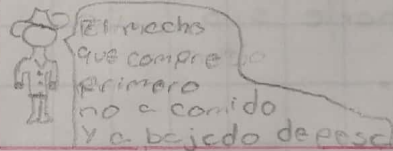 El macho
que compre
primero
no a comido
y a bajado de peso